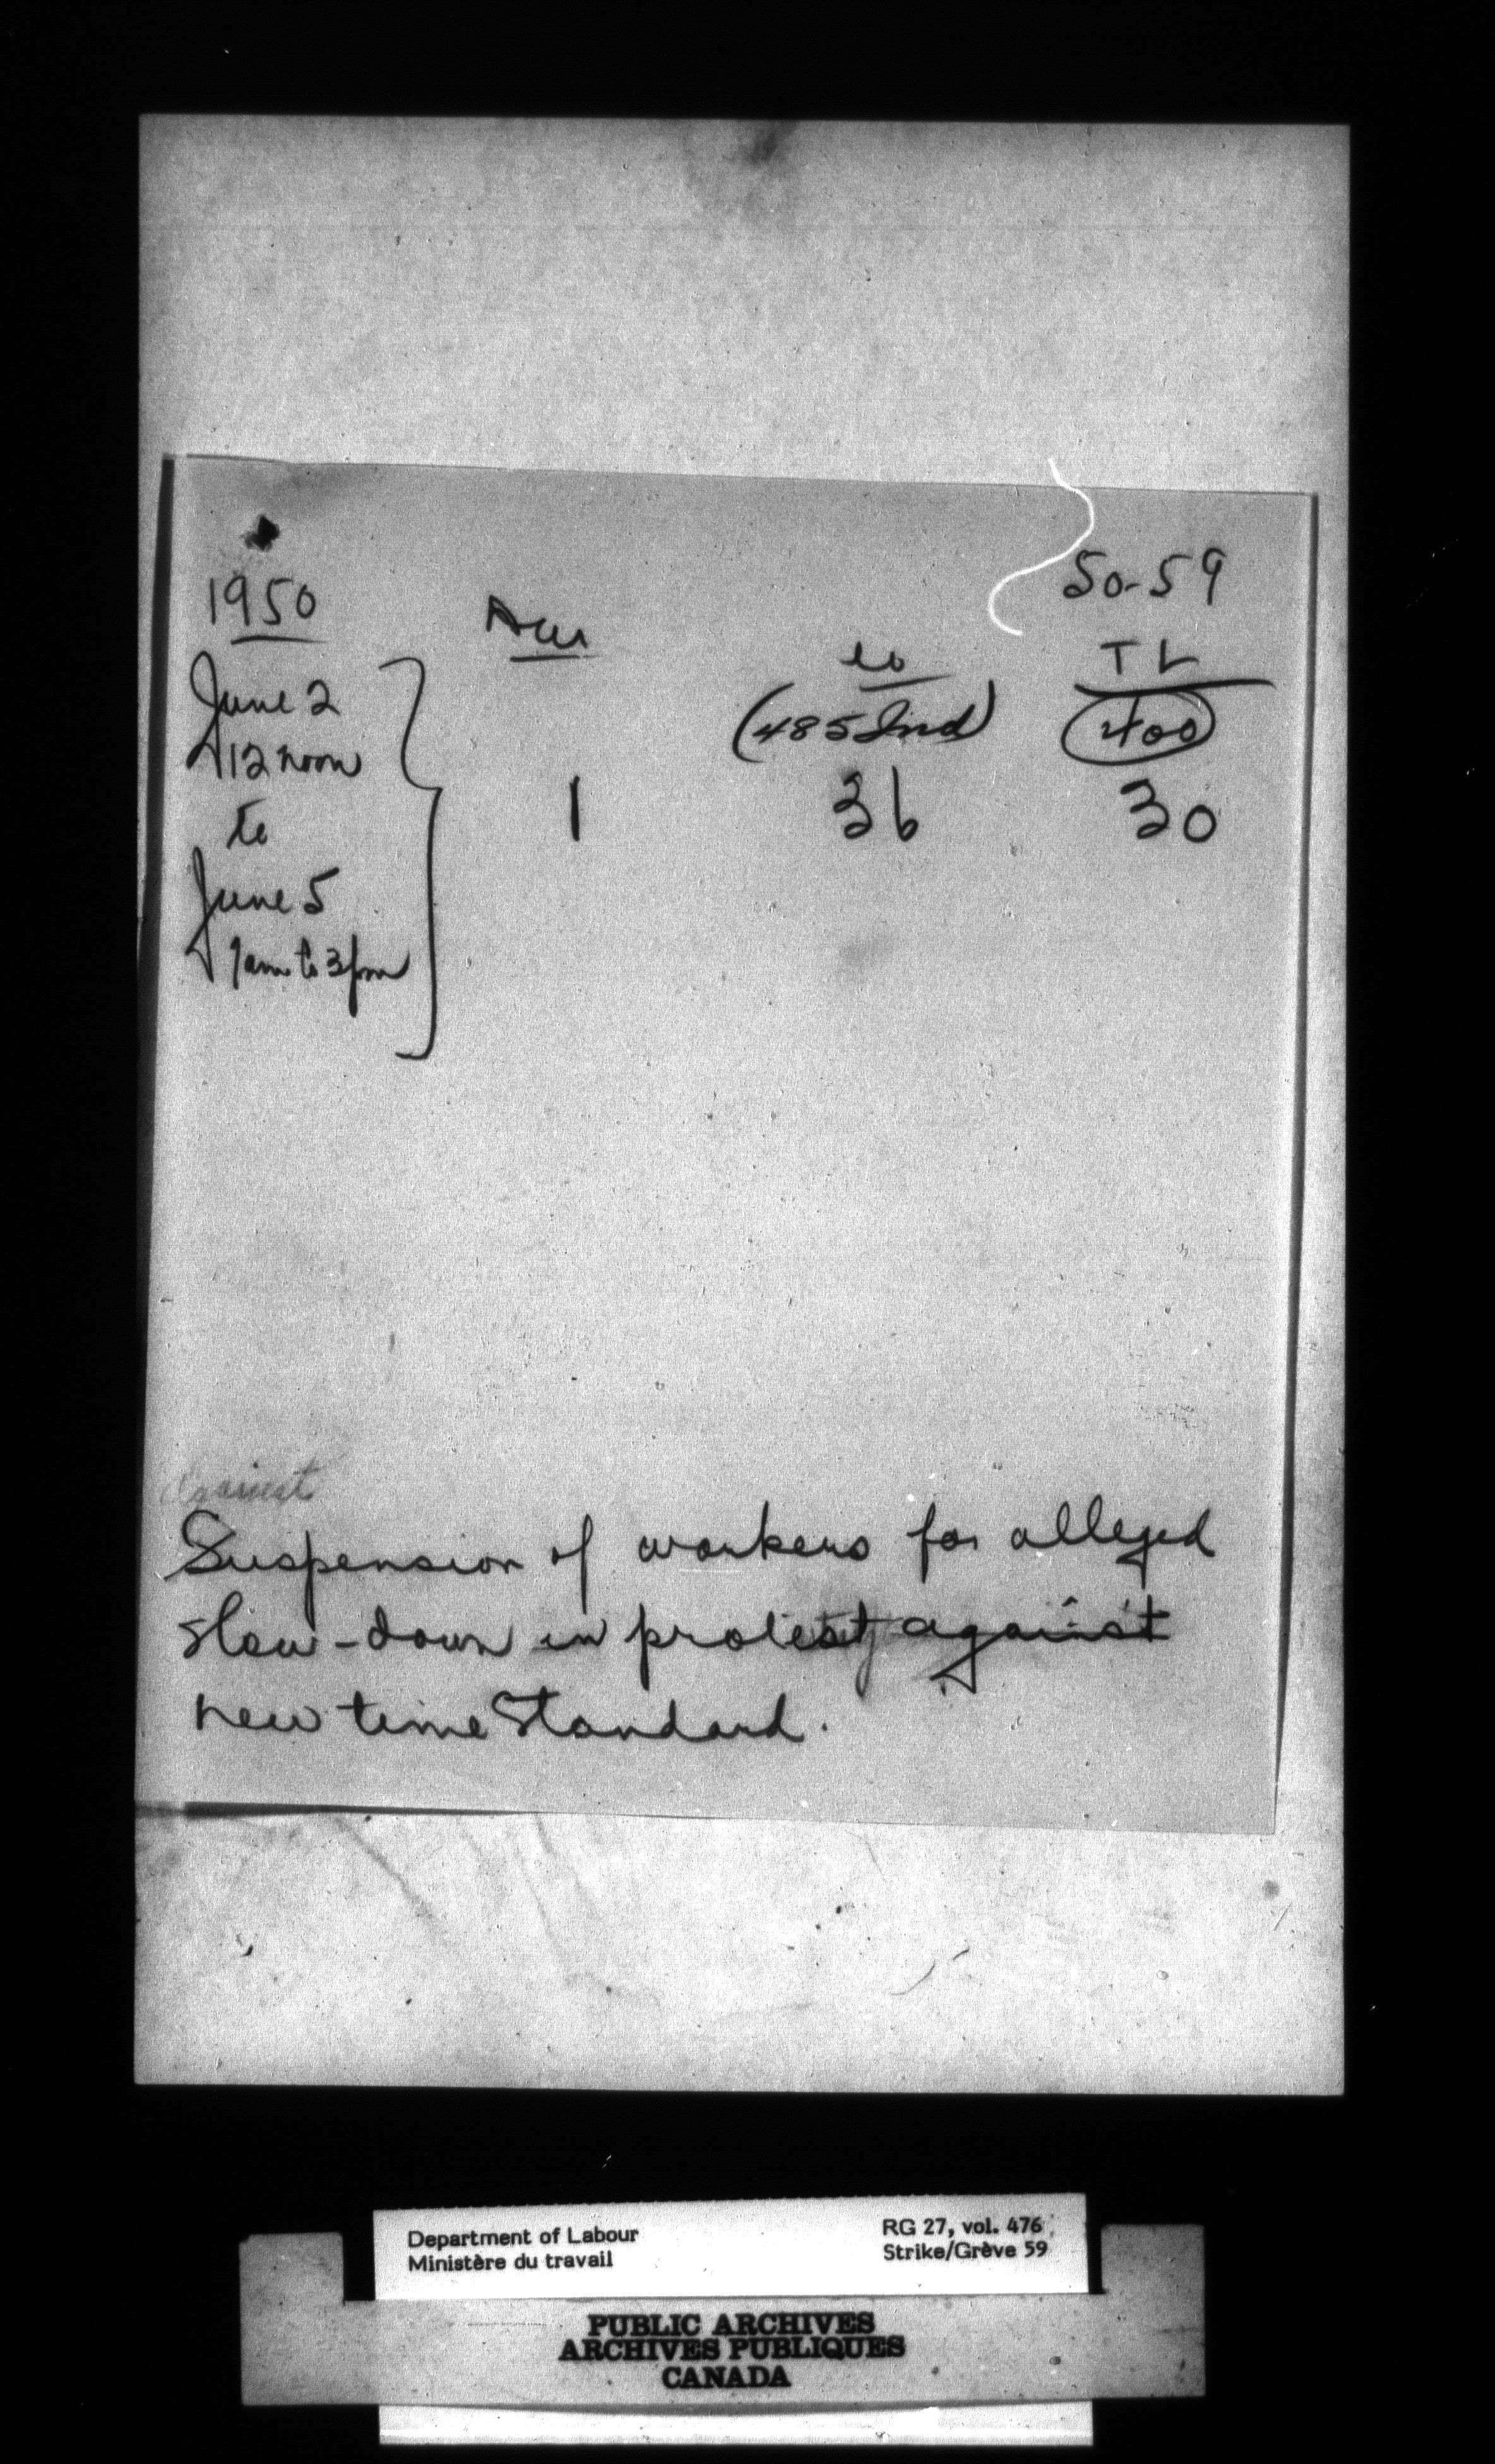 50-59
1950
TL
June 2
(485 Ind)
400
12 noon
1
36
30
to
June 5
9am to 3pm
Against
Suspension of workers for alleged
slow-down in protest against
new time Standard.
Department of Labour
Ministère du travail
RG 27, vol. 476
Strike/Grève 59
PUBLIC ARCHIVES
ARCHIVES PUBLIQUES
CANADA